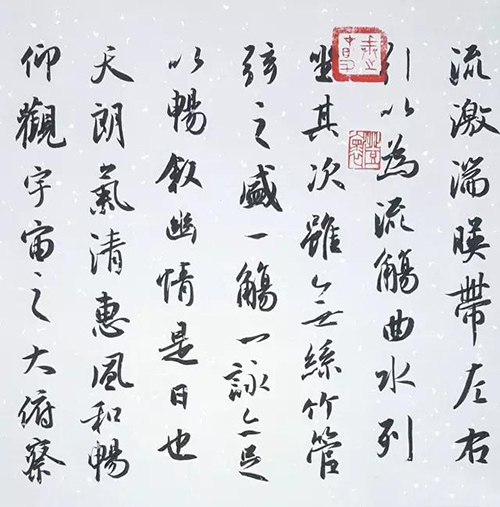 流激湍暎帶左右
引以為流觴曲水列
坐其次雖無絲竹管
弦之盛一觴一詠亦足
以暢敘幽情是日也
天朗氣清惠風和暢
仰觀宇宙之大俯察